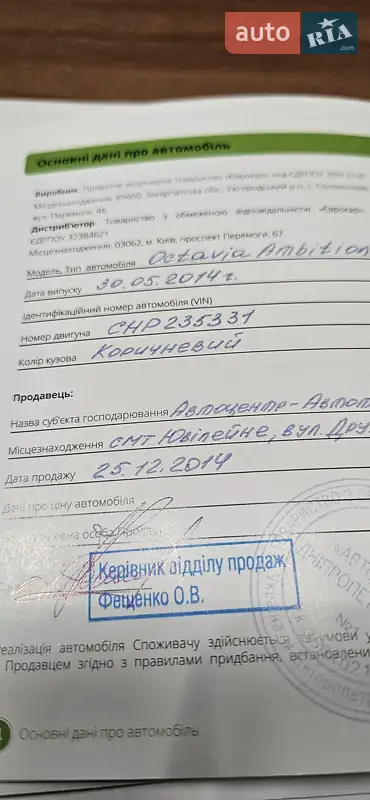 auto RIA.com
Основні дані про автомобіль
Виробник: Приватне акціонерне товариство «Єврокар» код ЄДРПОУ
Місцезнаходження: 89460, Закарпатська обл., Ужгородський р-н, с.
вул. Перемоги, 46
Дистриб'ютор: Товариство з обмеженою відповідальністю «Єврокар»,
ЄДРПОУ 32384621
Місцезнаходження: 03062, м. Київ, проспект Перемоги, 67
Модель, Тип автомобіля Octavia Ambition
Дата випуску 30.05.2014г.
Ідентифікаційний номер автомобіля (VIN)
Номер двигуна CHP235331
Колір кузова Коричневий
Продавець:
Назва суб'єкта господарювання Автоцентр-Автоп
Місцезнаходження смт Ювілейне, вул. Дру
Дата продажу 25.12.2014
Дані про ціну автомобіля
Керівник відділу продаж
Фещенко О.В.
Реалізація автомобіля Споживачу здійснюється за умови у
Продавцем згідно з правилами придбання, встановлени
Основні дані про автомобіль